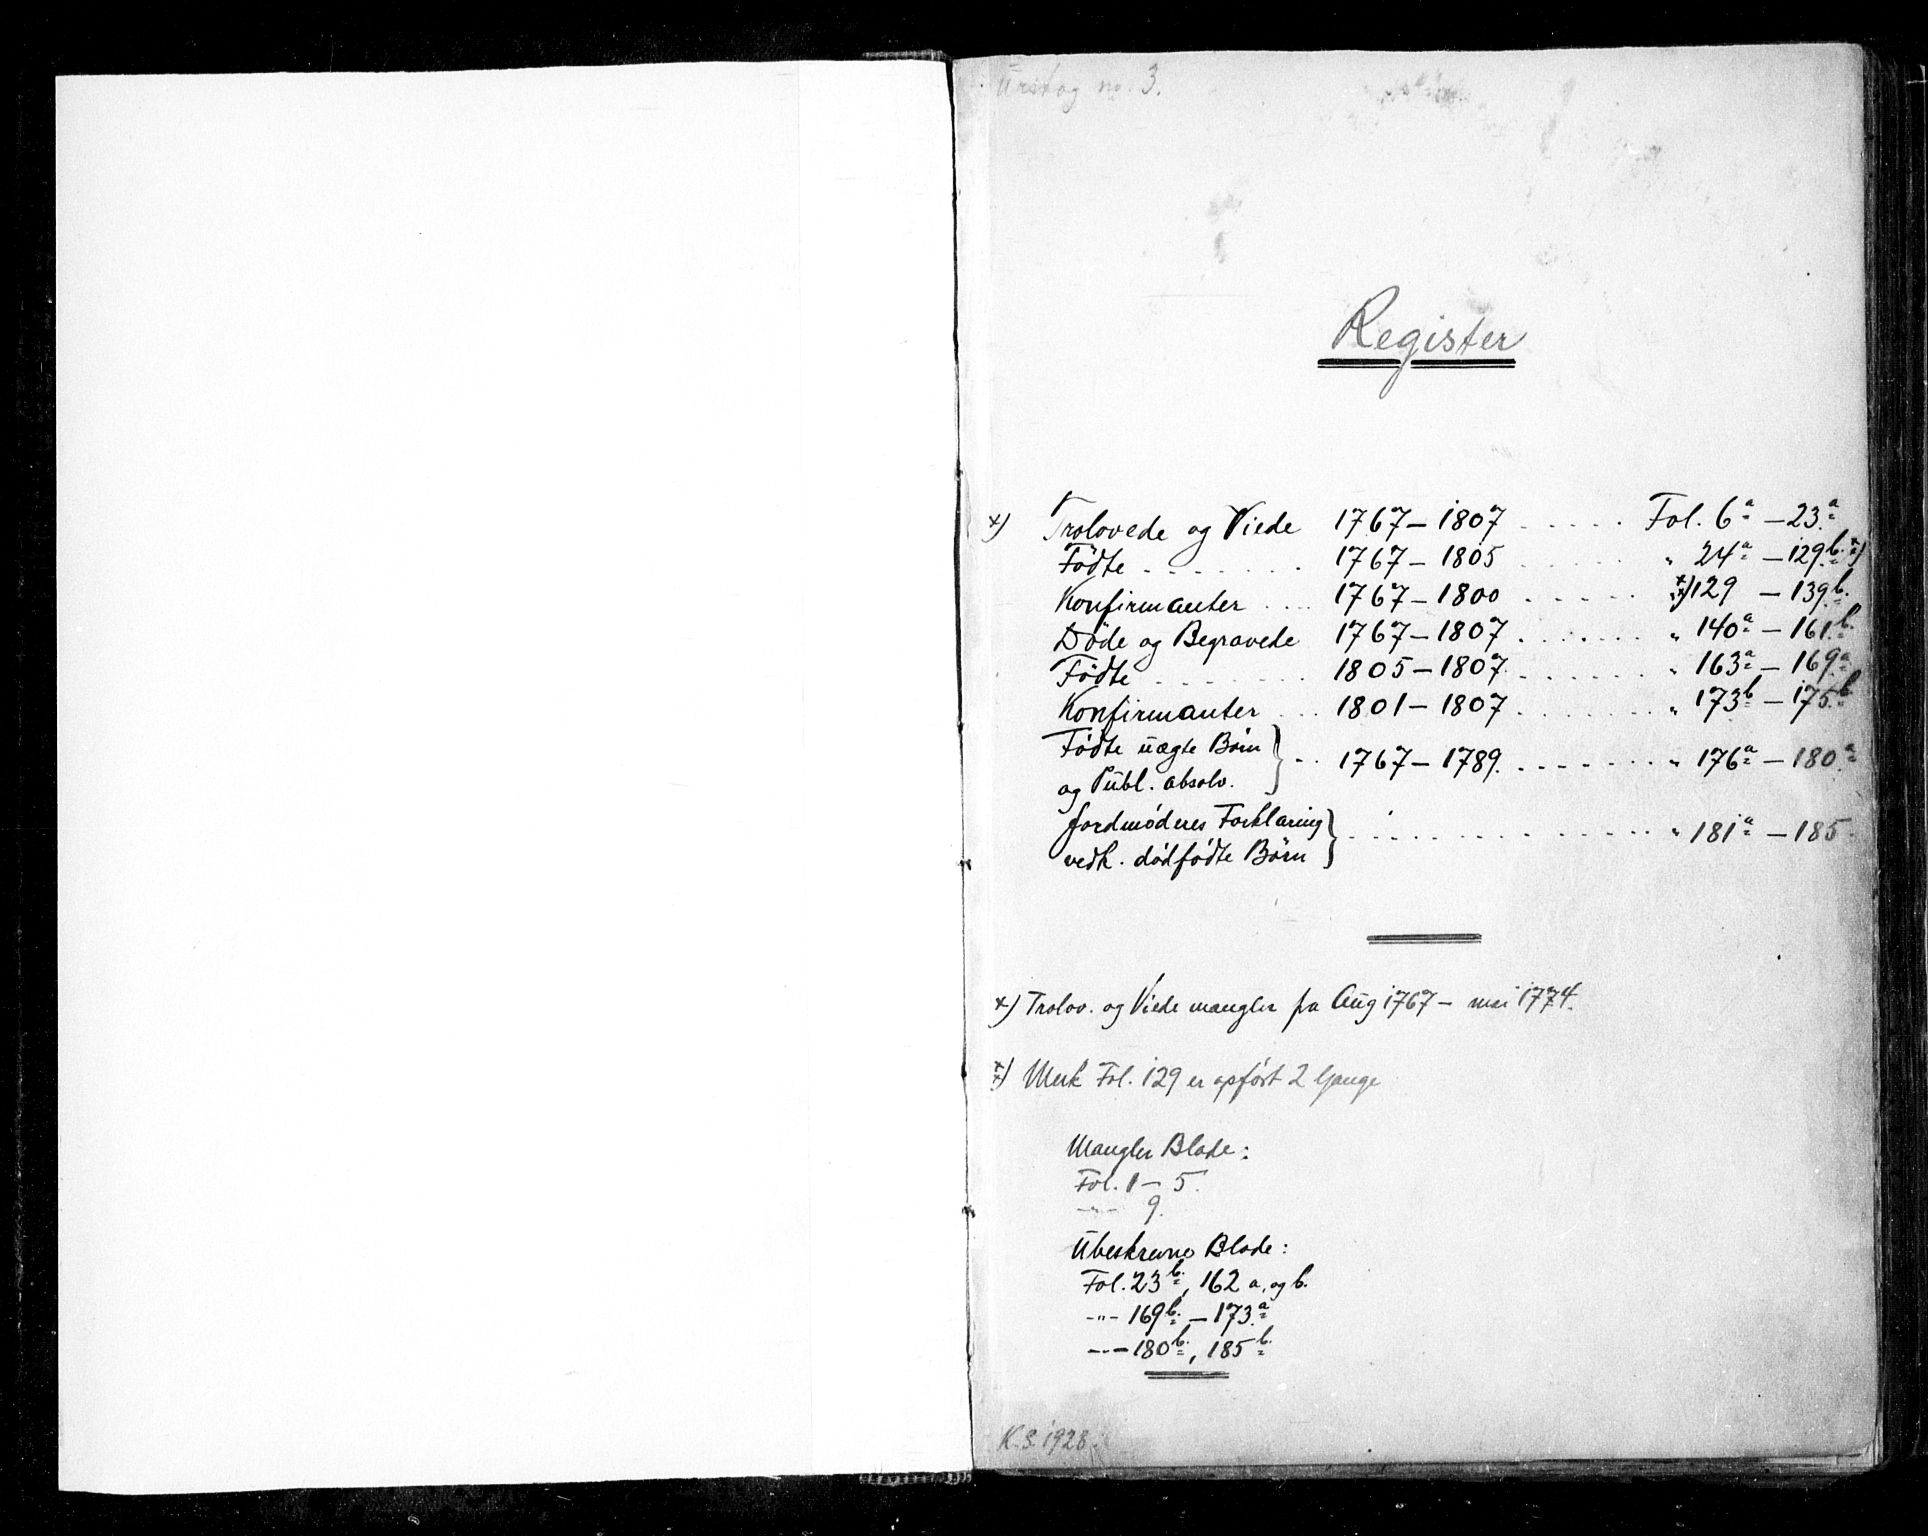 Urskog no. 3.
Register
x) Trolovede og Viede 1767 – 1807 . . . . . Fol. 6a – 23a
Födte . . . . . . . 1767 – 1805 . . . . . " 24a – 129b. xx)
Konfirmanter . . . . 1767 – 1800 . . . . . xx) 129 – 139b.
Döde og Begravede 1767 – 1807 . . . . . " 140a – 161b.
Födte . . . . . . . 1805 – 1807 . . . . . " 163a – 169a
Konfirmanter . . . 1801 – 1807 . . . . . " 173b – 175b
Födte uægte Börn
og Publ. absolv. } . . 1767 – 1789. . . . . . " 176a – 180a
Jordmödres Forklaring
vedk. dödfödte Börn } . . . . . . . . . . " 181a – 185.
x) Trolov. og Viede mangler fra Aug 1767 – mai 1774.
xx) Merk Fol. 129 er opfört 2 Gange
Mangler Blade:
Fol. 1 – 5.
–"– 9.
Ubeskrevne Blade:
Fol. 23b., 162 a. og b.
–"– 169b. – 173.a
–"– 180b., 185b.
K.S. 1928.